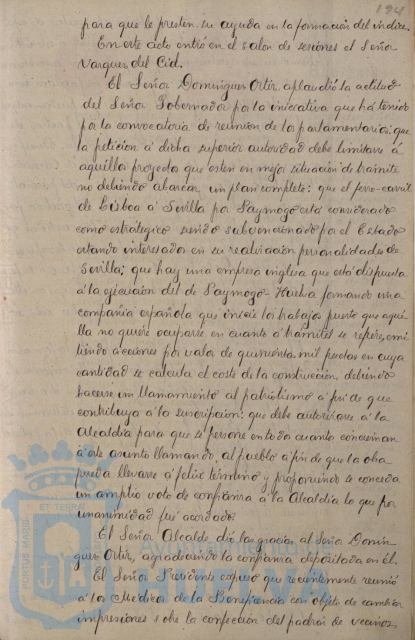 194
para que le presten su ayuda en la formación del indice.
En este acto entró en el salon de sesiones el Señor
Vazquez del Cid.
El Señor Dominguez Ortiz aplaudió la actitud
del Señor Gobernador por la iniciativa que há tenido
por la convocatoria de reunion de los parlamentarios; que
la petición á dicha superior autoridad debe limitarse á
aquellos proyectos que esten en mejor situacion de tramite
no debiendo abarcar un plan completo; que el ferro-carril
de Lisboa á Sevilla por Paymogo está considerado
como estratégico siendo subvencionado por el Estado
estando interesados en su realizacion personalidades de
Sevilla; que hay una empresa inglesa que está dispuesta
á la ejecución del de Paymogo-Huelva formando una
compañia española que inicie los trabajos puesto que aque
lla no quiere ocuparse en cuanto á tramites se refiere, emi
tiendo acciones por valor de quinientas mil pesetas en cuya
cantidad se calcula el coste de la construccion, debiendo
hacerse un llamamiento al patriotismo á fin de que
contribuya á la suscripcion; que debe autorizarse á la
Alcaldia para que se persone en todo cuanto concierna
á este asunto llamando al pueblo á fin de que la obra
pueda llevarse á feliz término y proponiendo se conceda
un amplio voto de confianza á la Alcaldia lo que por
unanimidad fué acordado.
El Señor Alcalde dio las gracias al Señor Domin
guez Ortiz, agradeciendo la confianza depositada en él.
El Señor Presidente expuso que recientemente reunió
á los Medicos de la Beneficencia con objeto de cambiar
impresiones sobre la confección del padrón de vecinos
PORTUS MARIS ET TERRAE